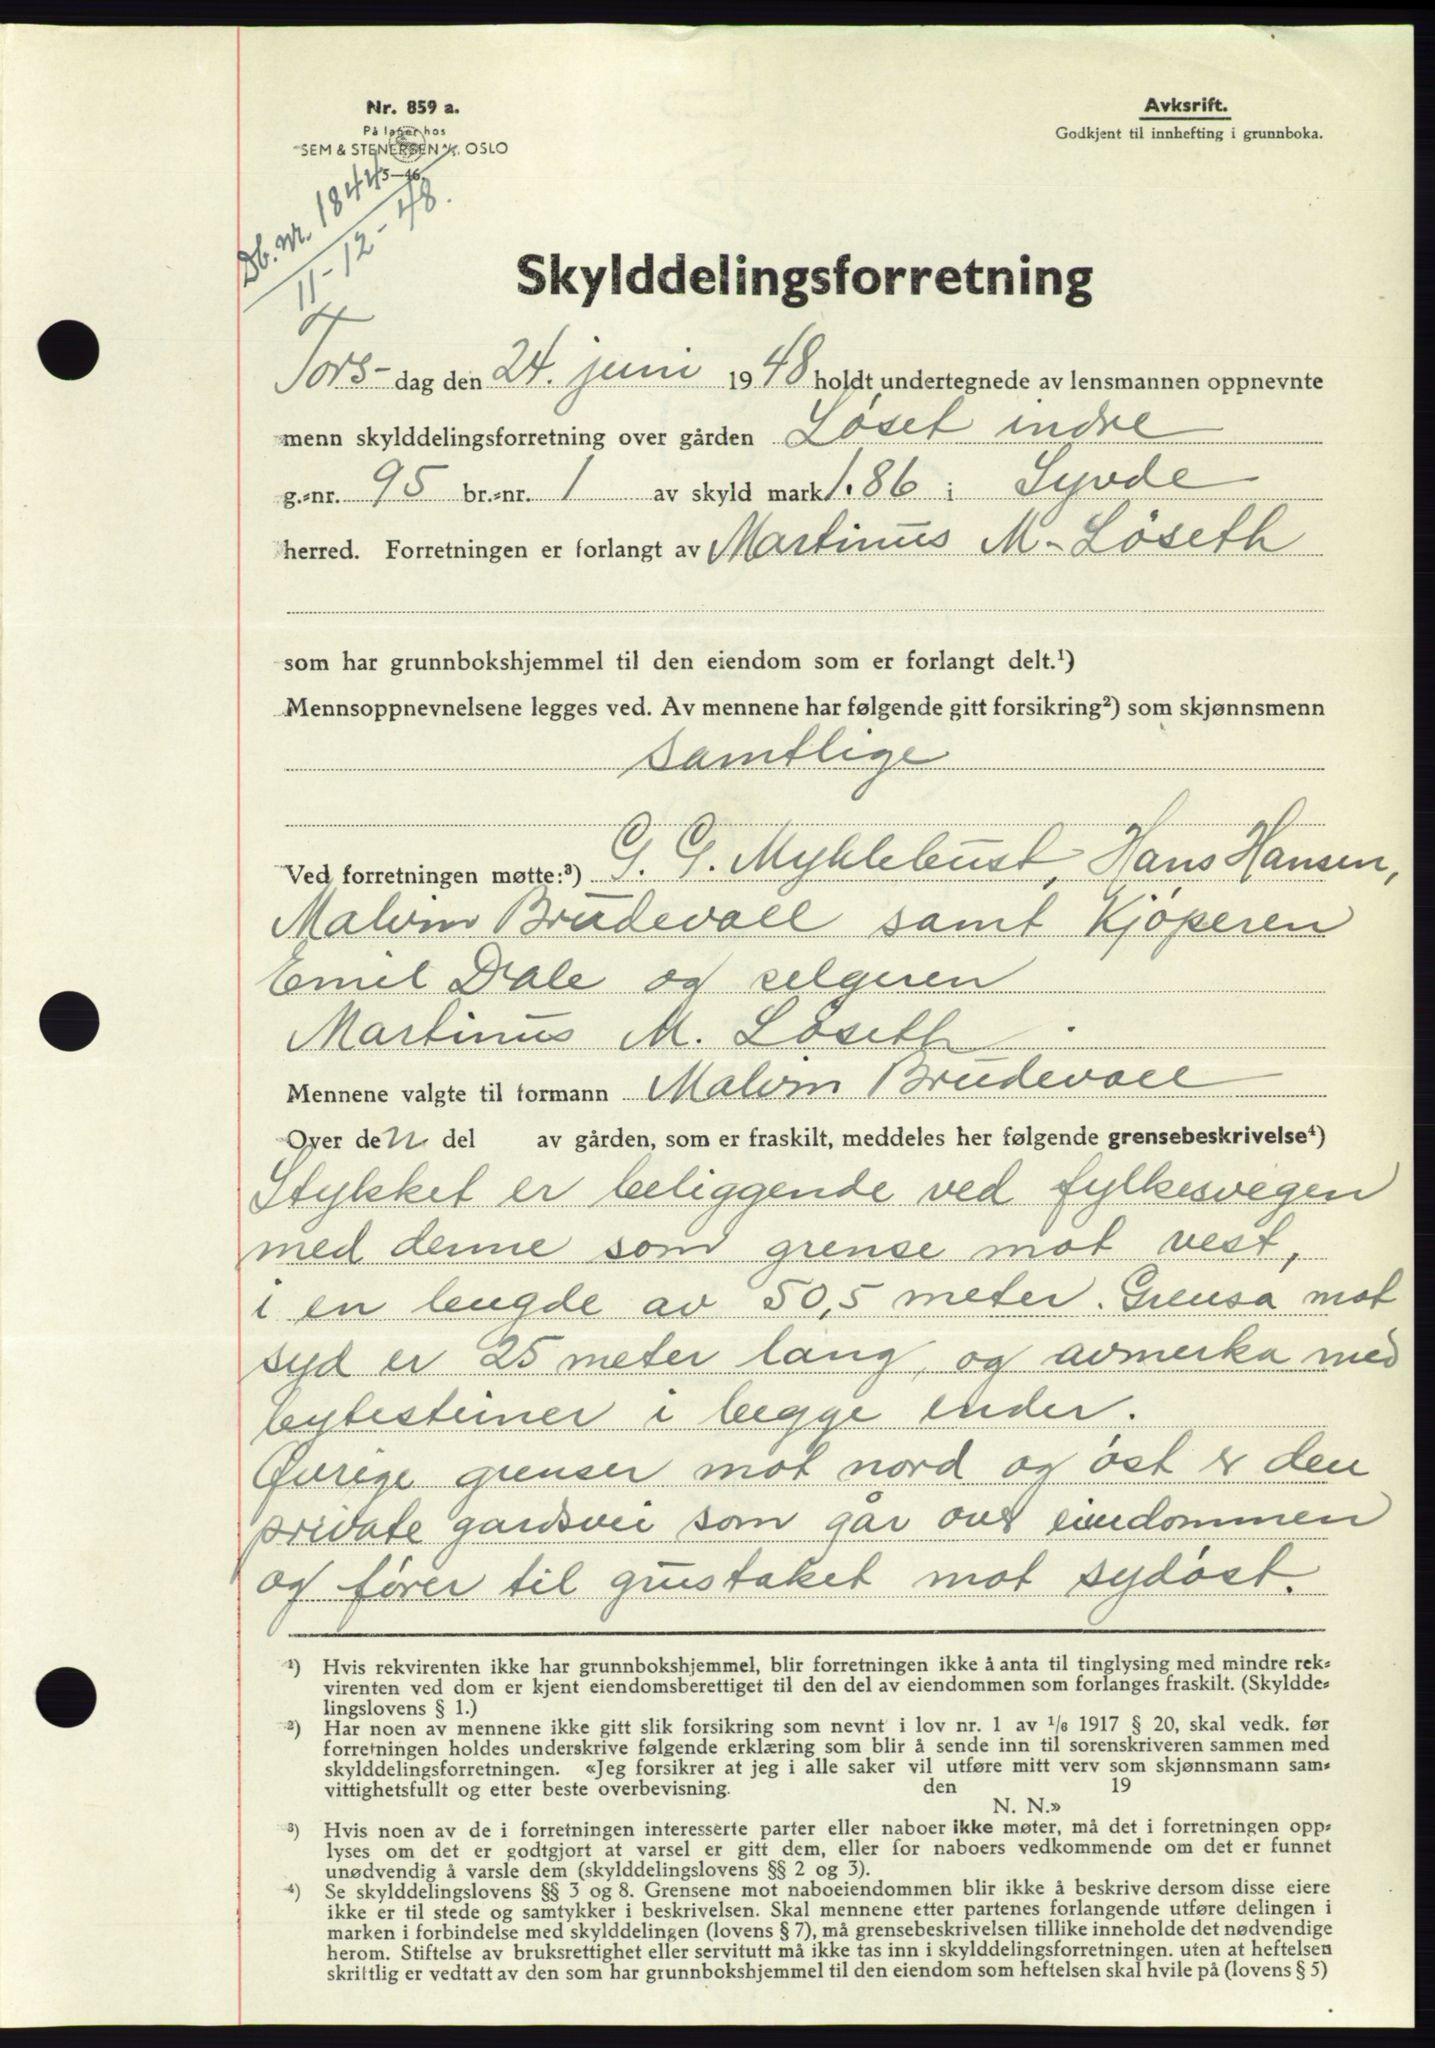 Nr. 859 a.
På lager hos
SEM & STENERSEN A/S, OSLO
5—46.
Avksrift.
Godkjent til innhefting i grunnboka.
Db. nr. 1844
11-12-48.
Skylddelingsforretning
Tors- dag den 24. juni 1948 holdt undertegnede av lensmannen oppnevnte
menn skylddelingsforretning over gården Löset indre
g.=nr. 95 br.=nr. 1 av skyld mark 1.86 i Syvde
herred. Forretningen er forlangt av Martinus M. Löseth
som har grunnbokshjemmel til den eiendom som er forlangt delt.¹)
Mennsoppnevnelsene legges ved. Av mennene har følgende gitt forsikring²) som skjønnsmenn
samtlige
Ved forretningen møtte:³) G. G. Myklebust, Hans Hansen,
Malvin Brudevoll samt Kjöperen
Emil Dale og selgeren
Martinus M. Löseth.
Mennene valgte til formann Malvin Brudevoll
Over den del av gården, som er fraskilt, meddeles her følgende grensebeskrivelse⁴)
Stykket er beliggende ved fylkesvegen
med denne som grense mot vest,
i en lengde av 50,5 meter. Grensa mot
syd er 25 meter lang, og avmerka med
bytesteiner i begge ender.
Øvrige grenser mot nord og öst er den
private gardsvei som går over eiendommen
og förer til grustaket mot sydöst.
¹) Hvis rekvirenten ikke har grunnbokshjemmel, blir forretningen ikke å anta til tinglysing med mindre rek=
virenten ved dom er kjent eiendomsberettiget til den del av eiendommen som forlanges fraskilt. (Skyldde=
lingslovens § 1.)
²) Har noen av mennene ikke gitt slik forsikring som nevnt i lov nr. 1 av 1/6 1917 § 20, skal vedk. før
forretningen holdes underskrive følgende erklæring som blir å sende inn til sorenskriveren sammen med
skylddelingsforretningen. «Jeg forsikrer at jeg i alle saker vil utføre mitt verv som skjønnsmann sam=
vittighetsfullt og etter beste overbevisning. den 19
N. N.»
³) Hvis noen av de i forretningen interesserte parter eller naboer ikke møter, må det i forretningen opp=
lyses om det er godtgjort at varsel er gitt dem, eller for naboers vedkommende om det er funnet
unødvendig å varsle dem (skylddelingslovens §§ 2 og 3).
⁴) Se skylddelingslovens §§ 3 og 8. Grensene mot naboeiendommen blir ikke å beskrive dersom disse eiere
ikke er til stede og samtykker i beskrivelsen. Skal mennene etter partenes forlangende utføre delingen i
marken i forbindelse med skylddelingen (lovens § 7), må grensebeskrivelsen tillike inneholde det nødvendige
herom. Stiftelse av bruksrettighet eller servitutt må ikke tas inn i skylddelingsforretningen. uten at heftelsen
skriftlig er vedtatt av den som har grunnbokshjemmel til den eiendom som heftelsen skal hvile på (lovens § 5)